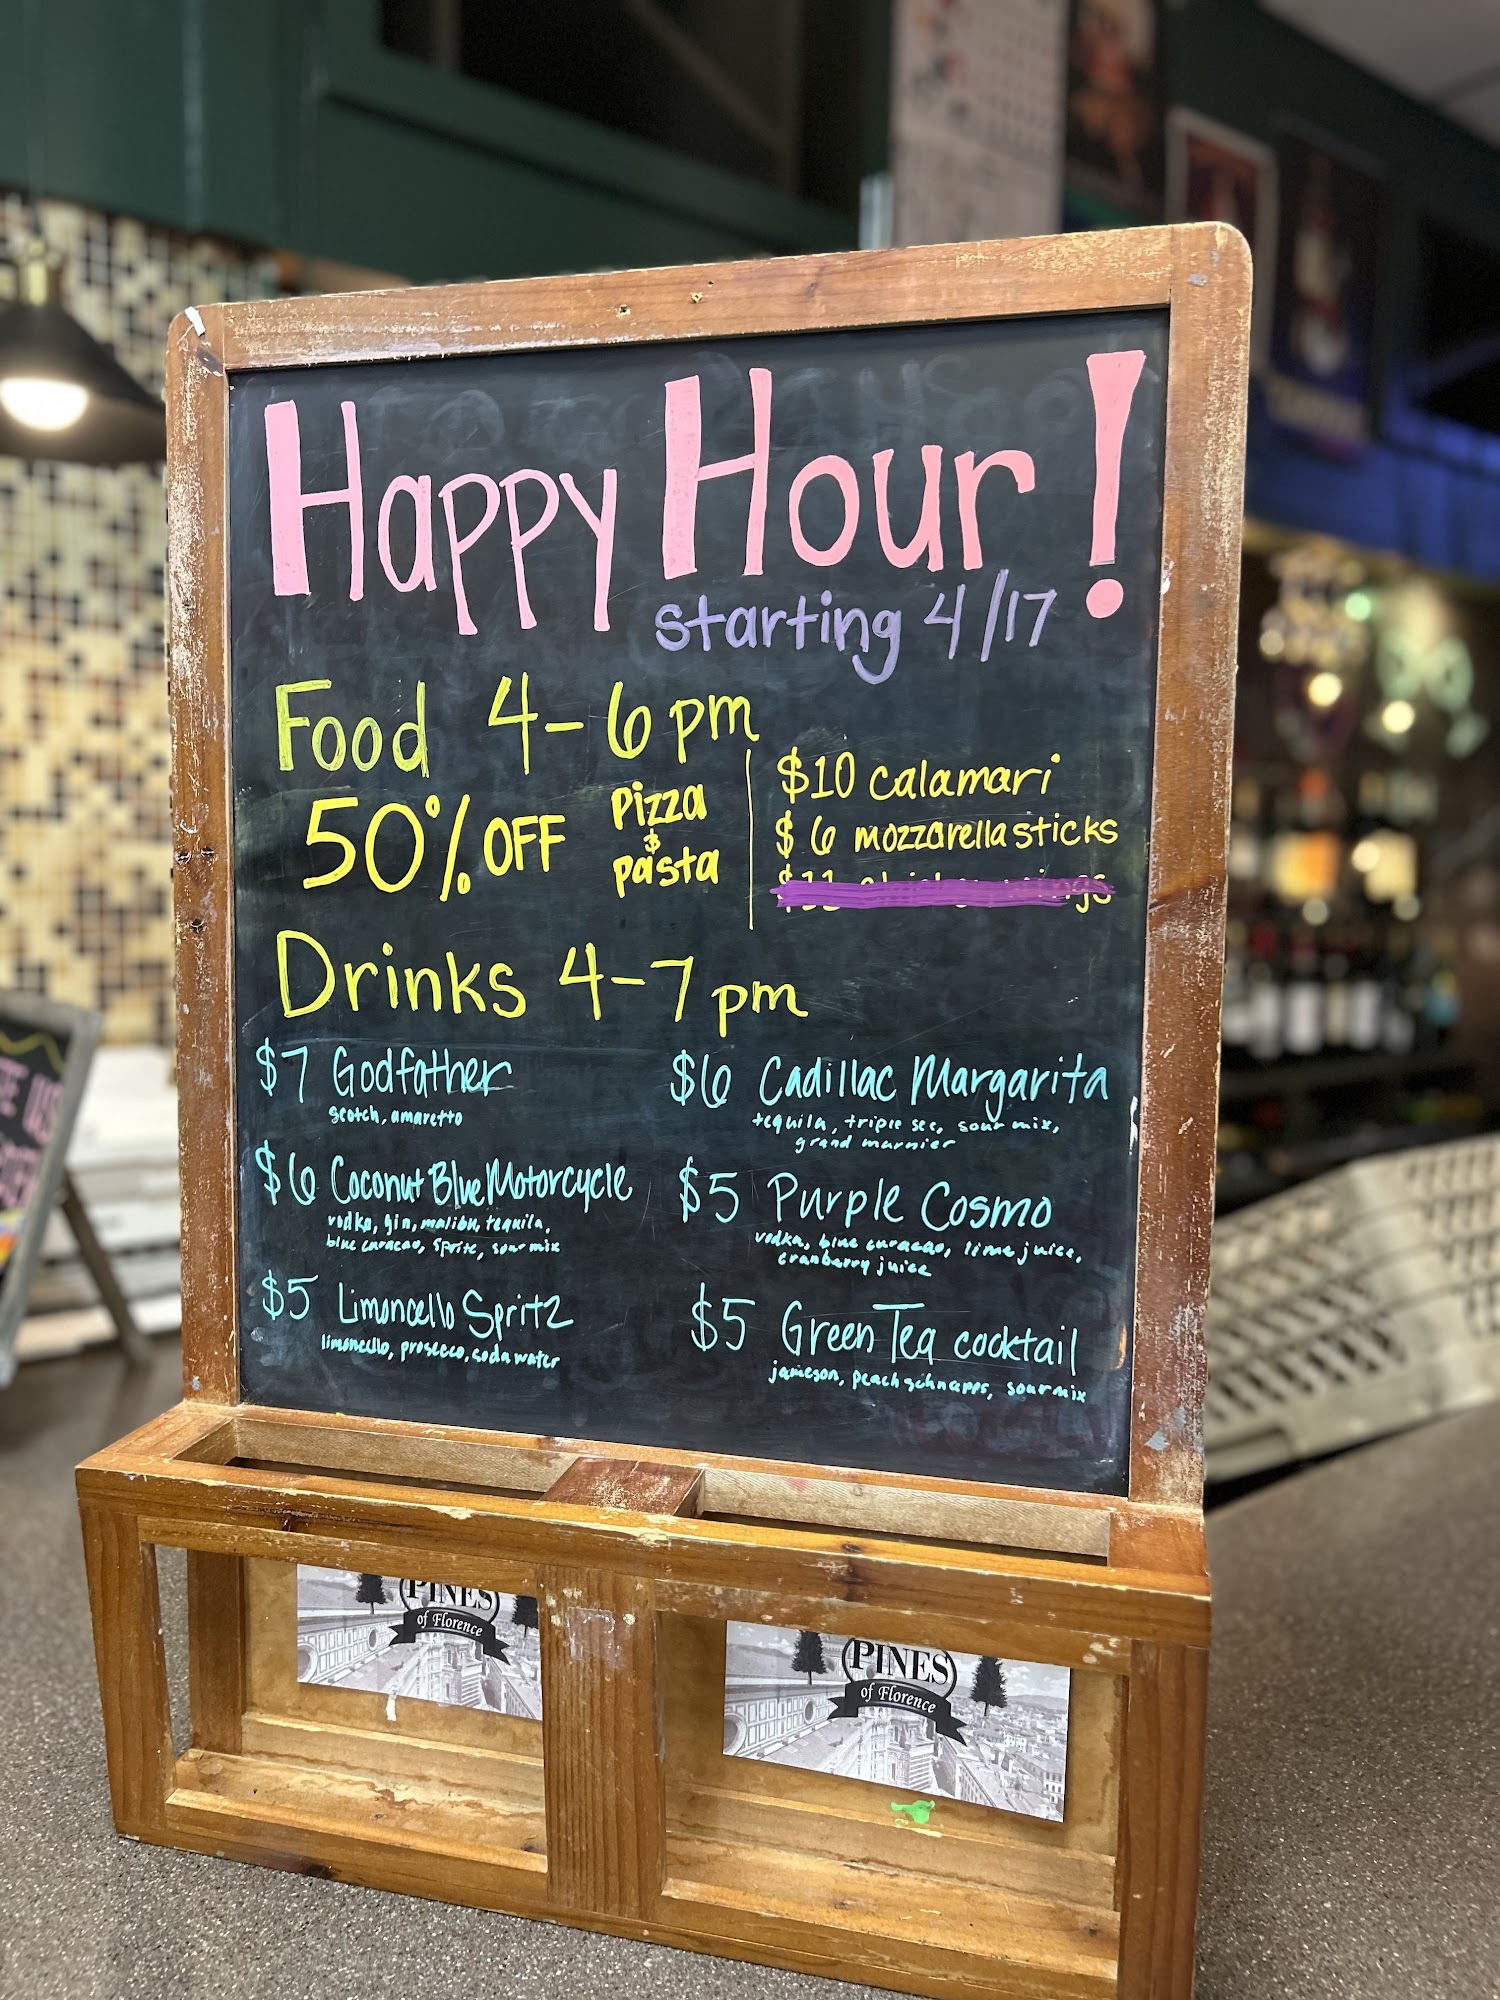 Happy Hour!
starting 4/17
Food 4-6pm
50% OFF
Pizza
&
pasta
$10 calamari
$6 mozzarella sticks
Drinks 4-7pm
$7 Godfather
scotch, amaretto
$6 Coconut Blue Motorcycle
vodka, gin, malibu, tequila,
blue curacao, sprite, sour mix
$5 Limoncello Spritz
limoncello, prosecco, soda water
$6 Cadillac Margarita
tequila, triple sec, sour mix,
grand marnier
$5 Purple Cosmo
vodka, blue curacao, lime juice,
cranberry juice
$5 Green Tea cocktail
jameson, peach schnapps, sour mix
PINES
of Florence
PINES
of Florence